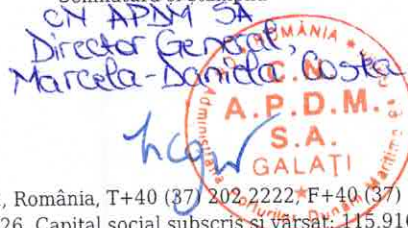 CN APDM SA
Director General,
Marcela-Daniela Costea
ROMÂNIA
C.N.
A.P.D.M.
S.A.
GALAȚI
România, T+40 (37) 202 2222, F+40 (37)
26, Capital social subscris și vărsat: 115.916